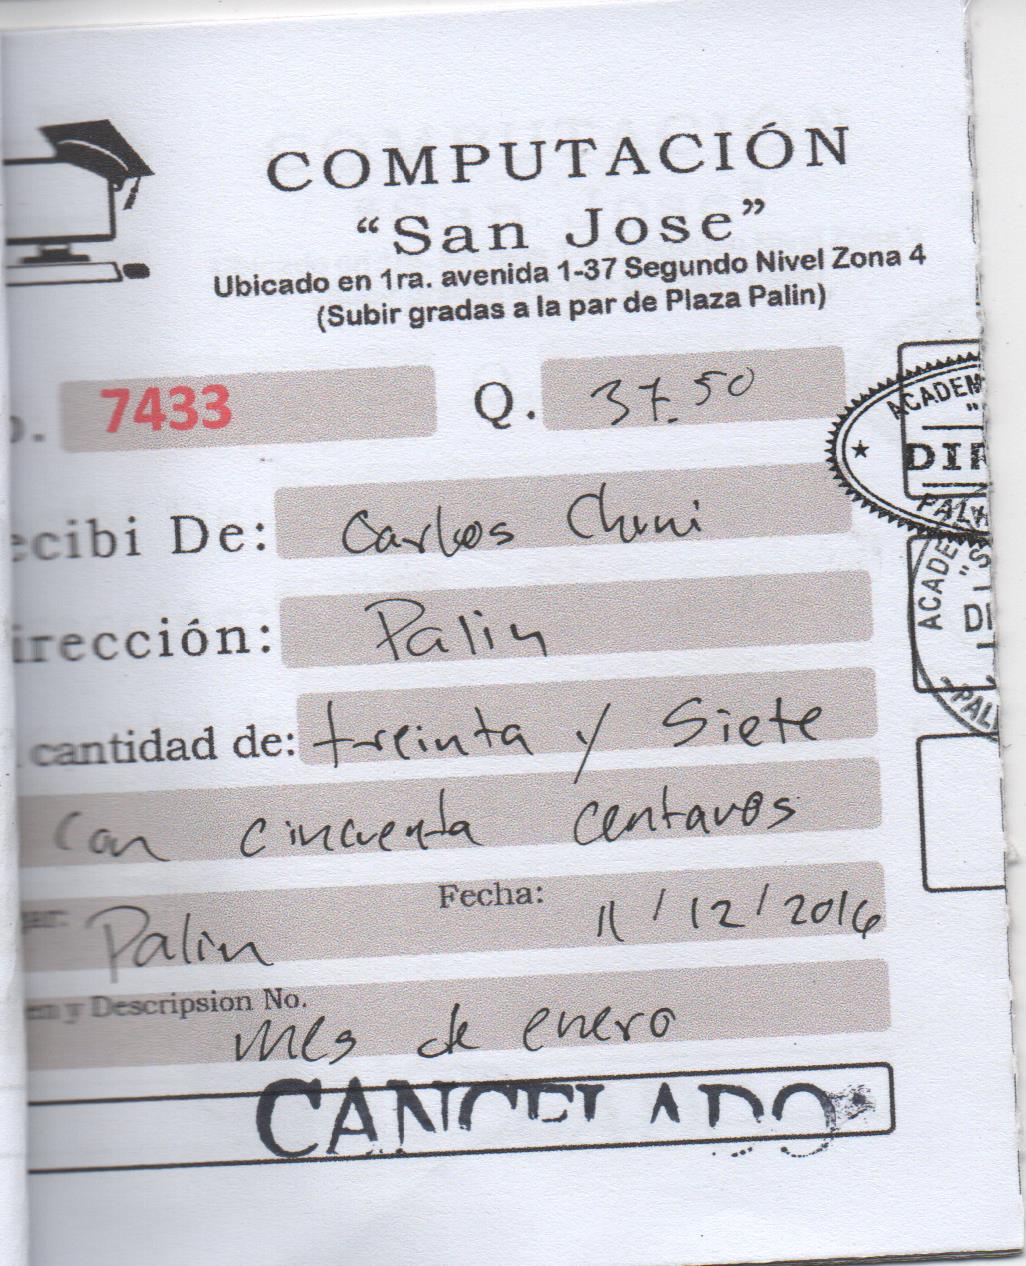 COMPUTACIÓN
“San Jose”
Ubicado en 1ra. avenida 1-37 Segundo Nivel Zona 4
(Subir gradas a la par de Plaza Palin)
7433 Q. 37.50
ecibi De: Carlos Chuni
irección: Palin
cantidad de: treinta y Siete
Con cincuenta centavos
Palin Fecha: 11/12/2016
en y Descripsion No.
mes de enero
CANCELADO
ACADEM
DIR
PALIN
ACADE
"S
DI
PALI